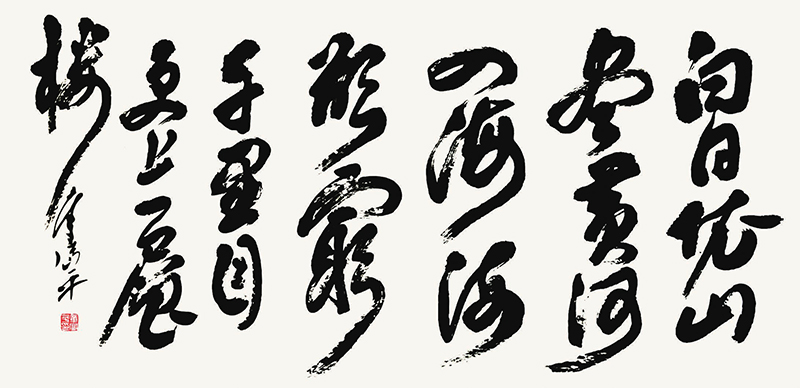 白日依山
盡黄河
入海流
欲窮
千里目
更上一層
樓